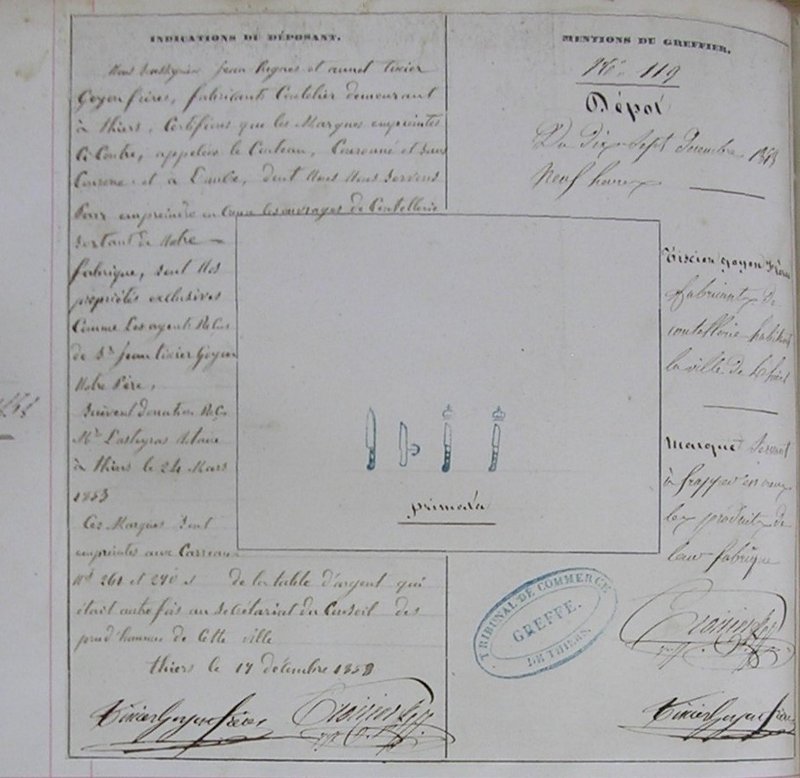 INDICATIONS DU DÉPOSANT.
Nous soussignés Jean Pignes et annet tixier
Goyon frères, fabricants Coutelier demeurant
à thiers, Certifions que les Marques empreintes
Ci-Contre, appelées le Couteau, Couronné et Sans
Couronne et à l'aube, dont Nous Nous Servons
Pour empreindre en Creux les ouvrages de Coutellerie
Sortant de Notre
fabrique, sont Nos
propriétés exclusives
Comme Les ayant Reçus
de Sr Jean tixier Goyon
Notre Père,
Suivent donation Reçu
Me Lasteyras Notaire
à thiers le 24 Mars
1853
Ces Marques Sont
empreintes aux Carreaux
Nos 261 et 270 de la table d'argent qui
était autrefois au Secrétariat du Conseil des
prud'hommes de Cette ville
thiers le 17 décembre 1858
Tixier Goyon frères
MENTIONS DU GREFFIER.
No. 119
Dépôt
Du Dix Sept Décembre 1858
Neuf heures
Tixier Goyon frères
fabricants de
coutellerie habitant
la ville de thiers
Marques Servant
à frapper en creux
les produits de
leur fabrique
primo da
TRIBUNAL DE COMMERCE
GREFFE.
DE THIERS.
Tixier Goyon frères